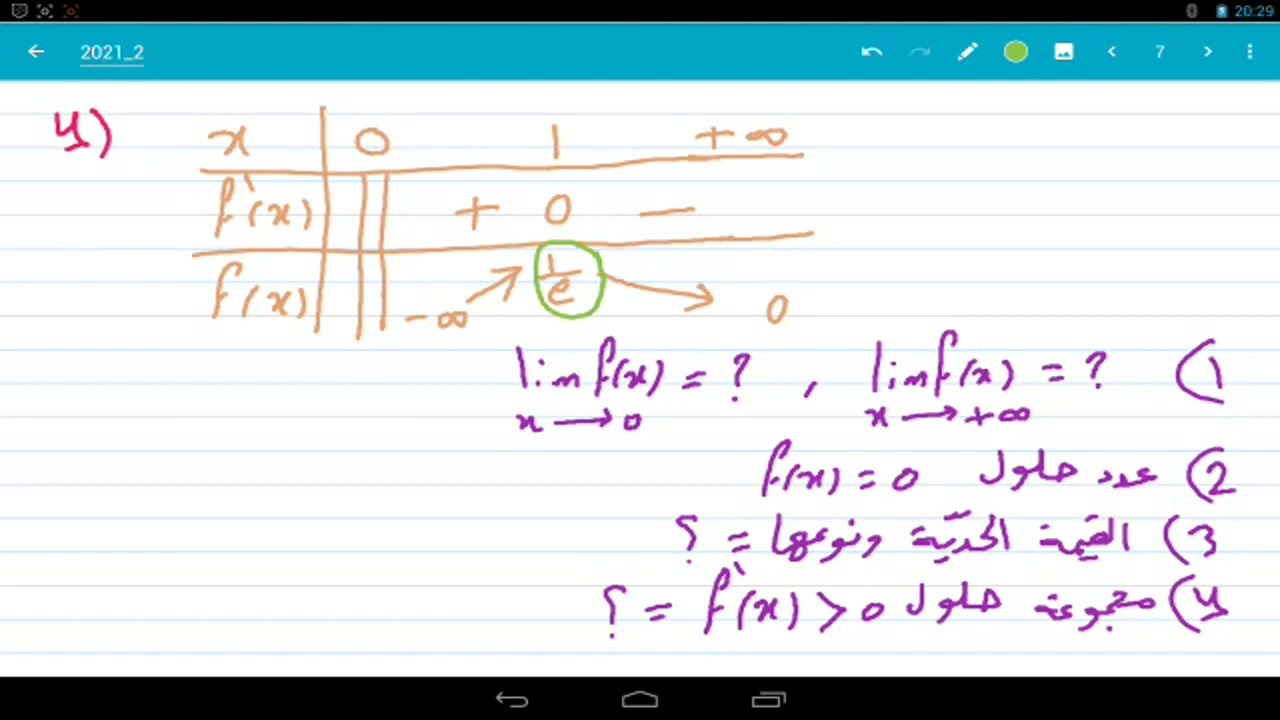 20:29
2021_2 7
4)
x 0 1 +∞
f'(x) + 0 -
f(x) -∞ 1/e 0
1) lim f(x) = ? , lim f(x) = ?
x → 0 x → +∞
2) عدد حلول f(x) = 0
3) القيمة الحدّية ونوعها = ؟
4) مجموعة حلول f'(x) > 0 = ؟